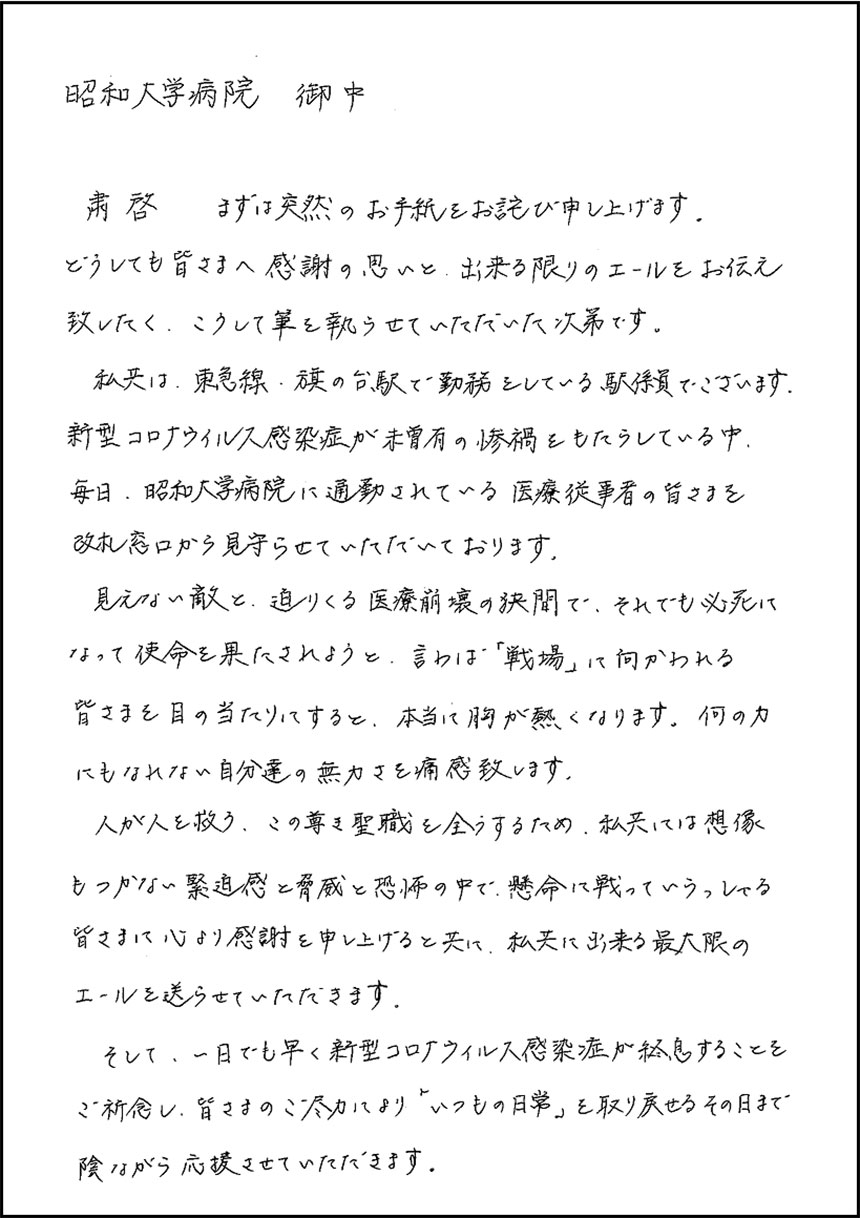 昭和大学病院　御中
粛啓　まずは突然のお手紙をお詫び申し上げます。
どうしても皆さまへ感謝の思いと、出来る限りのエールをお伝え
致したく、こうして筆を執らせていただいた次第です。
私共は、東急線・旗の台駅で勤務をしている駅係員でございます。
新型コロナウイルス感染症が未曾有の惨禍をもたらしている中、
毎日、昭和大学病院に通勤されている医療従事者の皆さまを
改札窓口から見守らせていただいております。
見えない敵と、迫りくる医療崩壊の狭間で、それでも必死に
なって使命を果たされようと、言わば「戦場」に向かわれる
皆さまを目の当たりにすると、本当に胸が熱くなります。何の力
にもなれない自分達の無力さを痛感致します。
人が人を救う、この尊き聖職を全うするため、私共には想像
もつかない緊迫感と脅威と恐怖の中で、懸命に戦っていらっしゃる
皆さまに心より感謝を申し上げると共に、私共に出来る最大限の
エールを送らせていただきます。
そして、一日でも早く新型コロナウィルス感染症が終息することを
ご祈念し、皆さまのご尽力により「いつもの日常」を取り戻せるその日まで
陰ながら応援させていただきます。